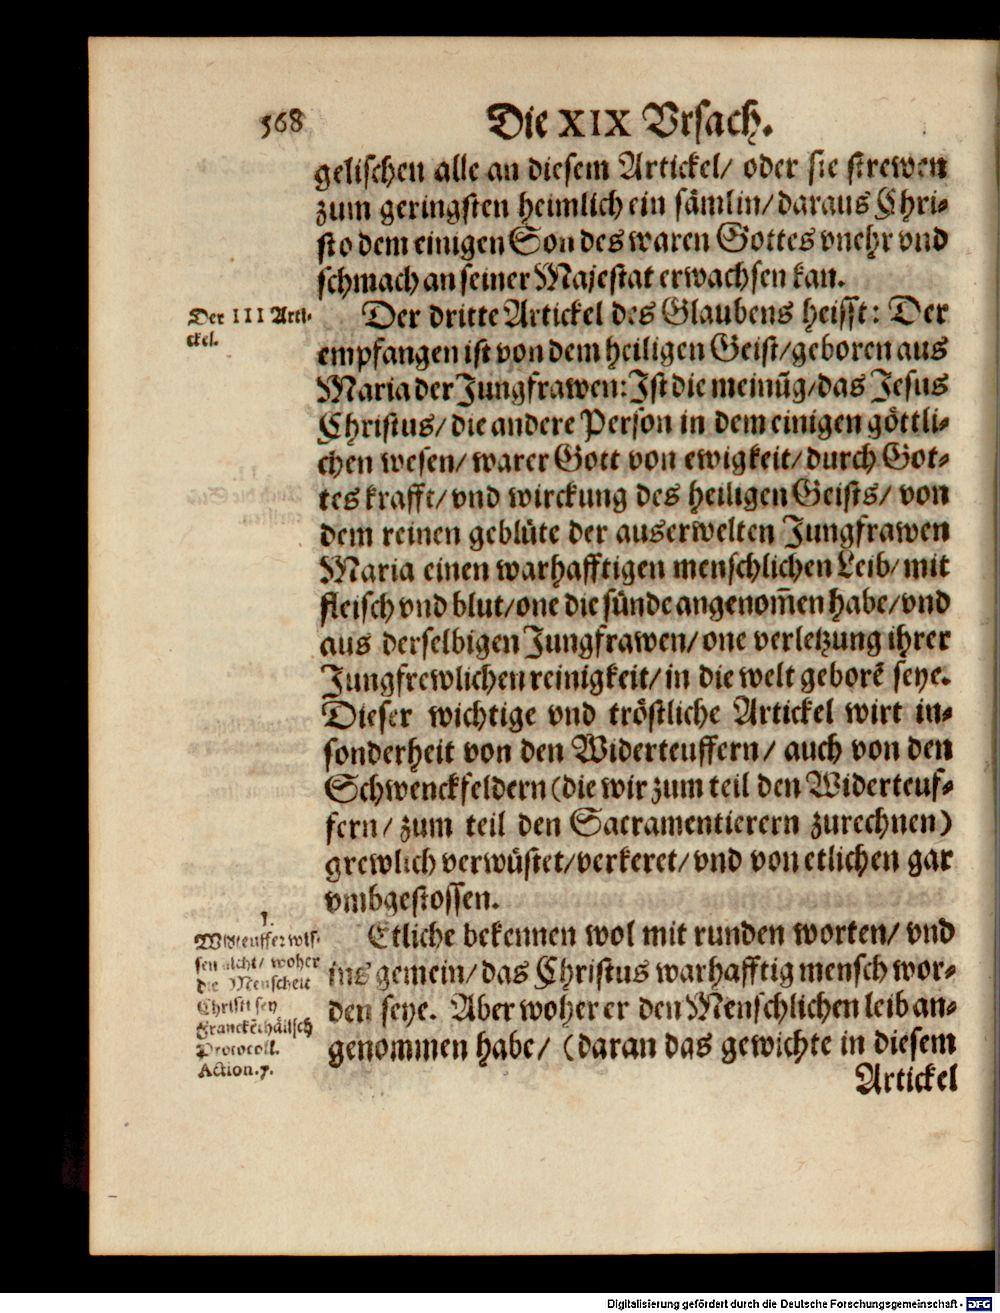 568
Die XIX Vrsach.
gelischen alle an diesem Artickel/ oder sie strewen
zum geringsten heimlich ein sämlin/ daraus Chri-
sto dem einigen Son des waren Gottes vnehr vnd
schmach an seiner Majestat erwachsen kan.
Der III Arti-
ckel.
Der dritte Artickel des Glaubens heisst: Der
empfangen ist von dem heiligen Geist/ geboren aus
Maria der Jungfrawen: Ist die meinũg/ das Jesus
Christus/ die andere Person in dem einigen göttli-
chen wesen/ warer Gott von ewigkeit/ durch Got-
tes krafft/ vnd wirckung des heiligen Geists/ von
dem reinen geblüte der auserwelten Jungfrawen
Maria einen warhafftigen menschlichen Leib/ mit
fleisch vnd blut/ one die sünde angenom̃en habe/ vnd
aus derselbigen Jungfrawen/ one verletzung ihrer
Jungfrewlichen reinigkeit/ in die welt geborẽ seye.
Dieser wichtige vnd tröstliche Artickel wirt in-
sonderheit von den Widerteuffern/ auch von den
Schwenckfeldern (die wir zum teil den Widerteuf-
fern/ zum teil den Sacramentierern zurechnen)
grewlich verwüstet/ verkeret/ vnd von etlichen gar
vmbgestossen.
1.
Widteuffer wis-
sen nicht/ woher
die Menscheit
Christi sey
Franckẽthälisch
Protocoll.
Action. 7.
Etliche bekennen wol mit runden worten/ vnd
ins gemein/ das Christus warhafftig mensch wor-
den seye. Aber woher er den Menschlichen leib an-
genommen habe/ (daran das gewichte in diesem
Artickel
Digitalisierung gefördert durch die Deutsche Forschungsgemeinschaft - DFG